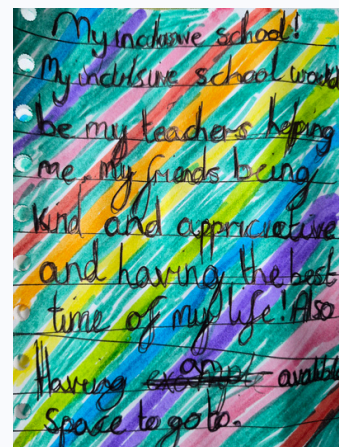 My inclusive school!
My inclusive school would
be my teachers helping
me, my friends being
kind and appriciative
and having the best
time of my life! Also
Having an available
space to go to.